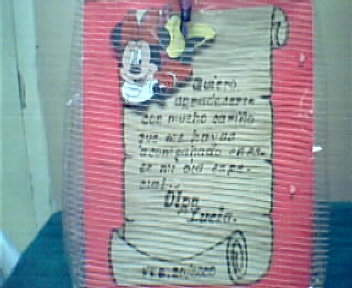 Quiero
agradecerte
con mucho cariño
que me hayas
acompañado en és-
te mi día espe-
cial.
Olga
Lucía.
FEB. 20/2000